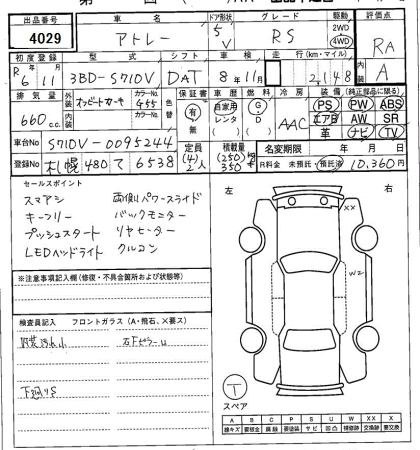 出品番号 車名 ドア形状 グレード 駆動 評価点
4029 アトレー 5 V RS 2WD 4WD RA
初度登録 型式 シフト 車検 走行(km・マイル) A
R6年11月 3BD-S710V DAT 8年11月 2,148
排気量 外装 内装 カラーNo. カラーNo. 色替 保証書 車歴 燃料 冷房 装備(純正部品に限る)
660cc G55 有 無 自家用 レンタ G D AAC PS PW ABS
エアB AW SR
革 ナビ TV
車台No S710V-0095244 定員 積載量 名変期限 年 月 日
登録No 札幌 480 て 6538 (4) 2人 (250) 350 kg R料金 未預託 預託済 10,360円
セールスポイント
スマアシ 両側パワースライド
キーフリー バックモニター
プッシュスタート リヤヒーター
LEDヘッドライト クルコン
※注意事項記入欄(修復・不具合箇所および状態等)
検査員記入 フロントガラス(A・飛石、×要ス)
下廻りS
左 右
XX
W2
T
スペア
A B C P S U W X XX
線キズ 要板金 腐蝕 要塗装 サビ 凹凸 補修跡 交換跡 要交換